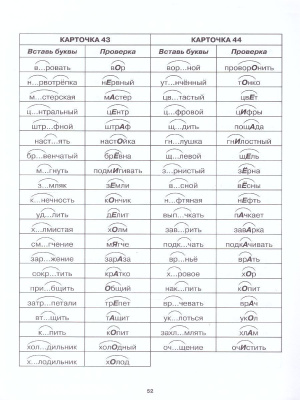 КАРТОЧКА 43 КАРТОЧКА 44
Вставь буквы Проверка Вставь буквы Проверка
в...ровать вОр вор...ной проворОнить
н...рвотрёпка нЕрвный ут...нчённый тОнко
м...стерская мАстер цв...тастый цвЕт
ц...нтральный цЕнтр ц...фровой цИфры
штр...фной штрАф щ...дить пощАда
наст...ять настОйка гн...лушка гнИлостный
бр...венчатый брЕвна щ...левой щЕль
м...гнуть подмИгивать з...рнистый зЕрна
з...мляк зЕмли в...сной вЕсны
к...нечность кОнчик н...фтяная нЕфть
уд...лить дЕлит вып...чкать пАчкает
х...лмистая хОлм зав...рить завАрка
см...гчение мЯгче подк...чать подкАчивать
зар...жение зарАза вр...ньё врАть
сокр...тить крАтко х...ровое хОр
при...бщить Общий нак...пить кОпит
затр...петали трЕпет вр...чевать врАч
вт...щить тАщит ук...лоться укОл
к...пить кОпит захл...млять хлАм
хол...дильник холОдный оч...щение очИстить
х...лодильник хОлод
52